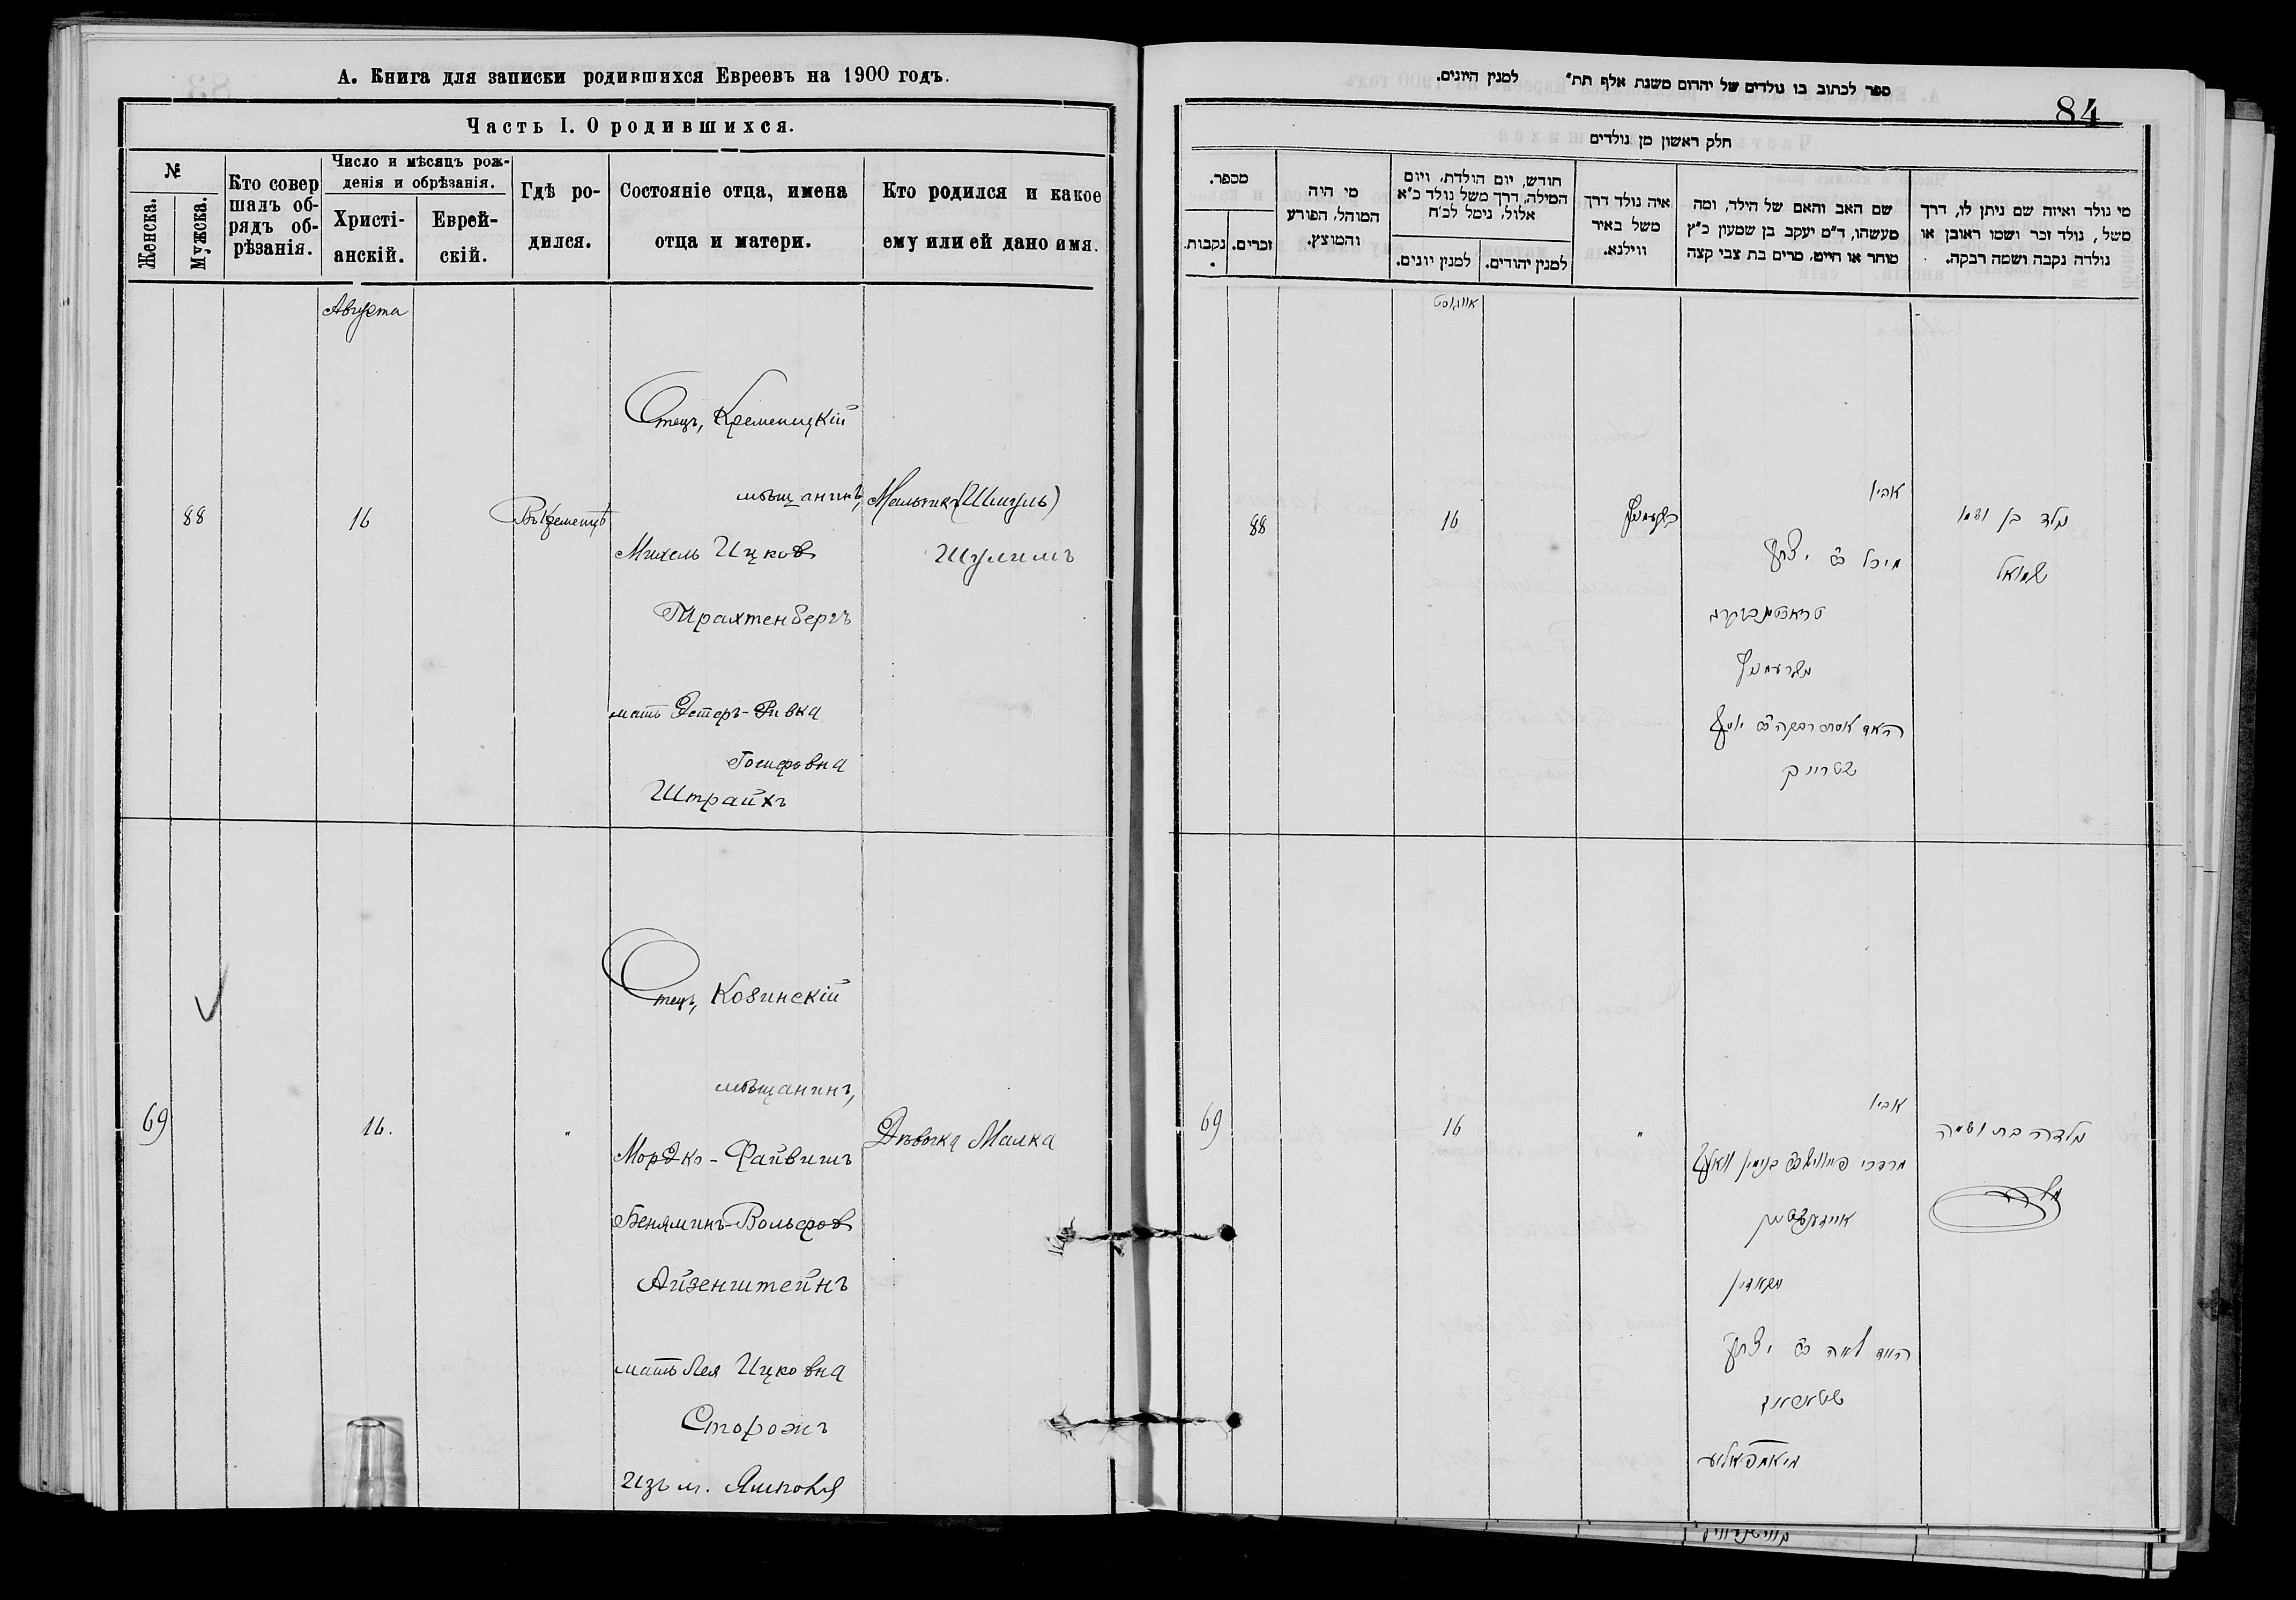 А. Книга для записки родившихся Евреевъ на 1900 годъ.
Часть I. О родившихся.
№
Женска.
Мужска.
Кто совер
шалъ об-
рядъ об-
рѣзанія.
Число и мѣсяцъ рож-
денія и обрѣзанія.
Христі-
анскій.
Еврей-
скій.
Гдѣ ро-
дился.
Состояніе отца, имена
отца и матери.
Кто родился и какое
ему или ей дано имя.
Августа
88
16
Въ Кременцѣ
Отецъ, Кременецкій
мѣщанинъ,
Михель Ицков
Трахтенбергъ
мать Эстеръ-Ривка
Іосифовна
Штрайхъ
Мальчикъ (Шмуль)
69
16.
"
Отецъ, Козинскій
мѣщанинъ,
Мордко-Файвишъ
Беняминъ-Вольфов
Айзенштейнъ
мать Лея Ицковна
Сторожъ
изъ м.
Дѣвочка Малка
ספר לכתוב בו נולדים של יהדום משנת אלף תת״ למנין היונים.
84
חלק ראשון מן נולדים
מספר.
נקבות.
זכרים.
מי היה
המוהל, הפורע
והמוצץ.
חודש, יום הולדת, ויום
המילה, דרך משל נולד כ״א
אלול, נימל לכ״ח
למנין יונים.
למנין יהודים.
איה נולד דרך
משל באיר
ווילנא.
שם האב והאם של הילד, ומה
מעשהו, ד״מ יעקב בן שמעון כ״ץ
סוחר או חייט, מרים בת צבי קצה
מי נולד ואיזה שם ניתן לו, דרך
משל, נולד זכר ושמו ראובן או
נולדה נקבה ושמה רבקה.
אויגוסט
88
16
בקרעמניץ
אביו
מיכל ב״ר יצחק
טראכטנבערג
מקרעמניץ
האם אסתר רבקה ב״ר יוסף
שטרייך
נולד בן ושמו
שמואל
69
16
"
אביו
מרדכי פייוויש ב״ר בנימין וואלף
אייזענשטיין
מקאזין
האם לאה ב״ר יצחק
נולדה בת ושמה
מלכה